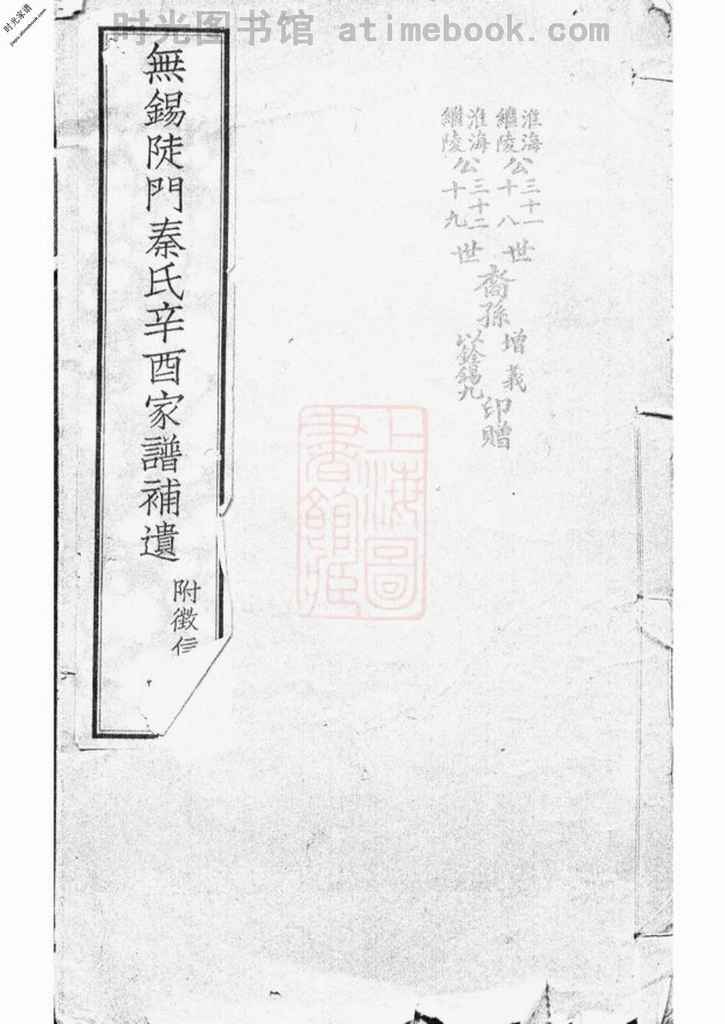 时光图书馆 atimebook.com
时光家谱
淮海公三十一世
繼陵公十八世
淮海公三十二世
繼陵公十九世
裔孫
增義
以銓錫九
印贈
無錫陡門秦氏辛酉家譜補遺
附徵信
上海圖
書館藏